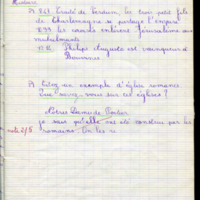 Histoire
843 Traité de Verdun, les trois petit fils
de Charlemagne se partage l'empire
1099 les croisés enlèvent Jérusalem aux
musulmans
Philipe Auguste est vainqueur à
Bouvines
Citez un exemple d'église romane.
Que savez-vous sur ces églises ?
Notre Dame
je sais qu'elle ont été construe par les
romains. On les
note 2/5